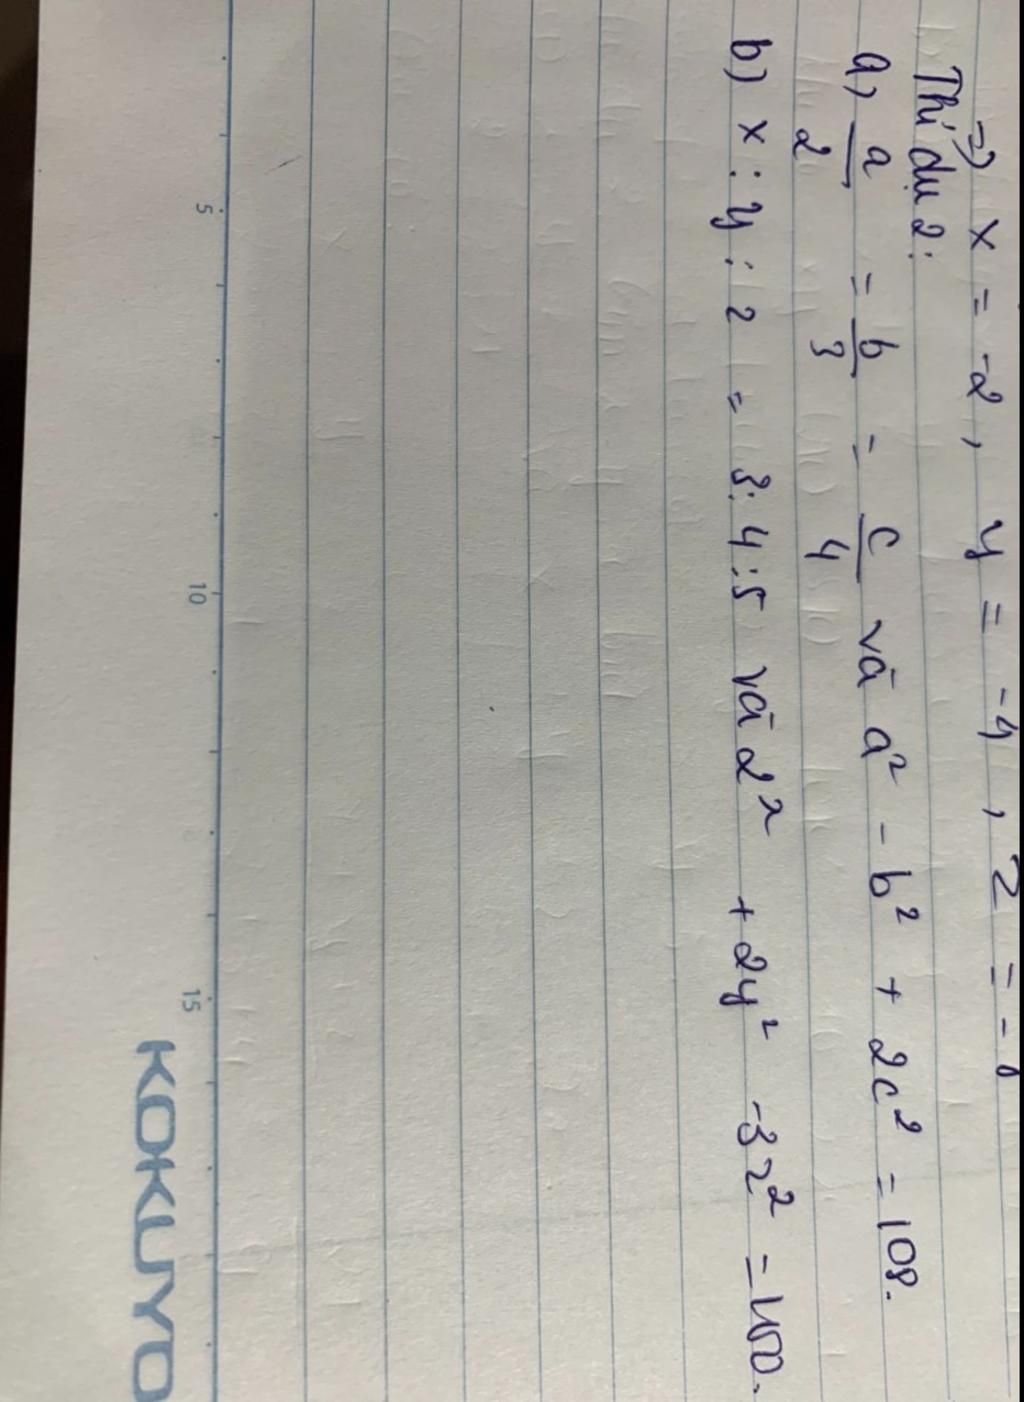 =) x = -2, y = -4, z = -
Thí dụ 2:
a) a/2 = b/3 = c/4 và a² - b² + 2c² = 108.
b) x : y : z = 3 : 4 : 5 và 2x² + 2y² - 3z² = -100.
5 10 15
KOKUYO